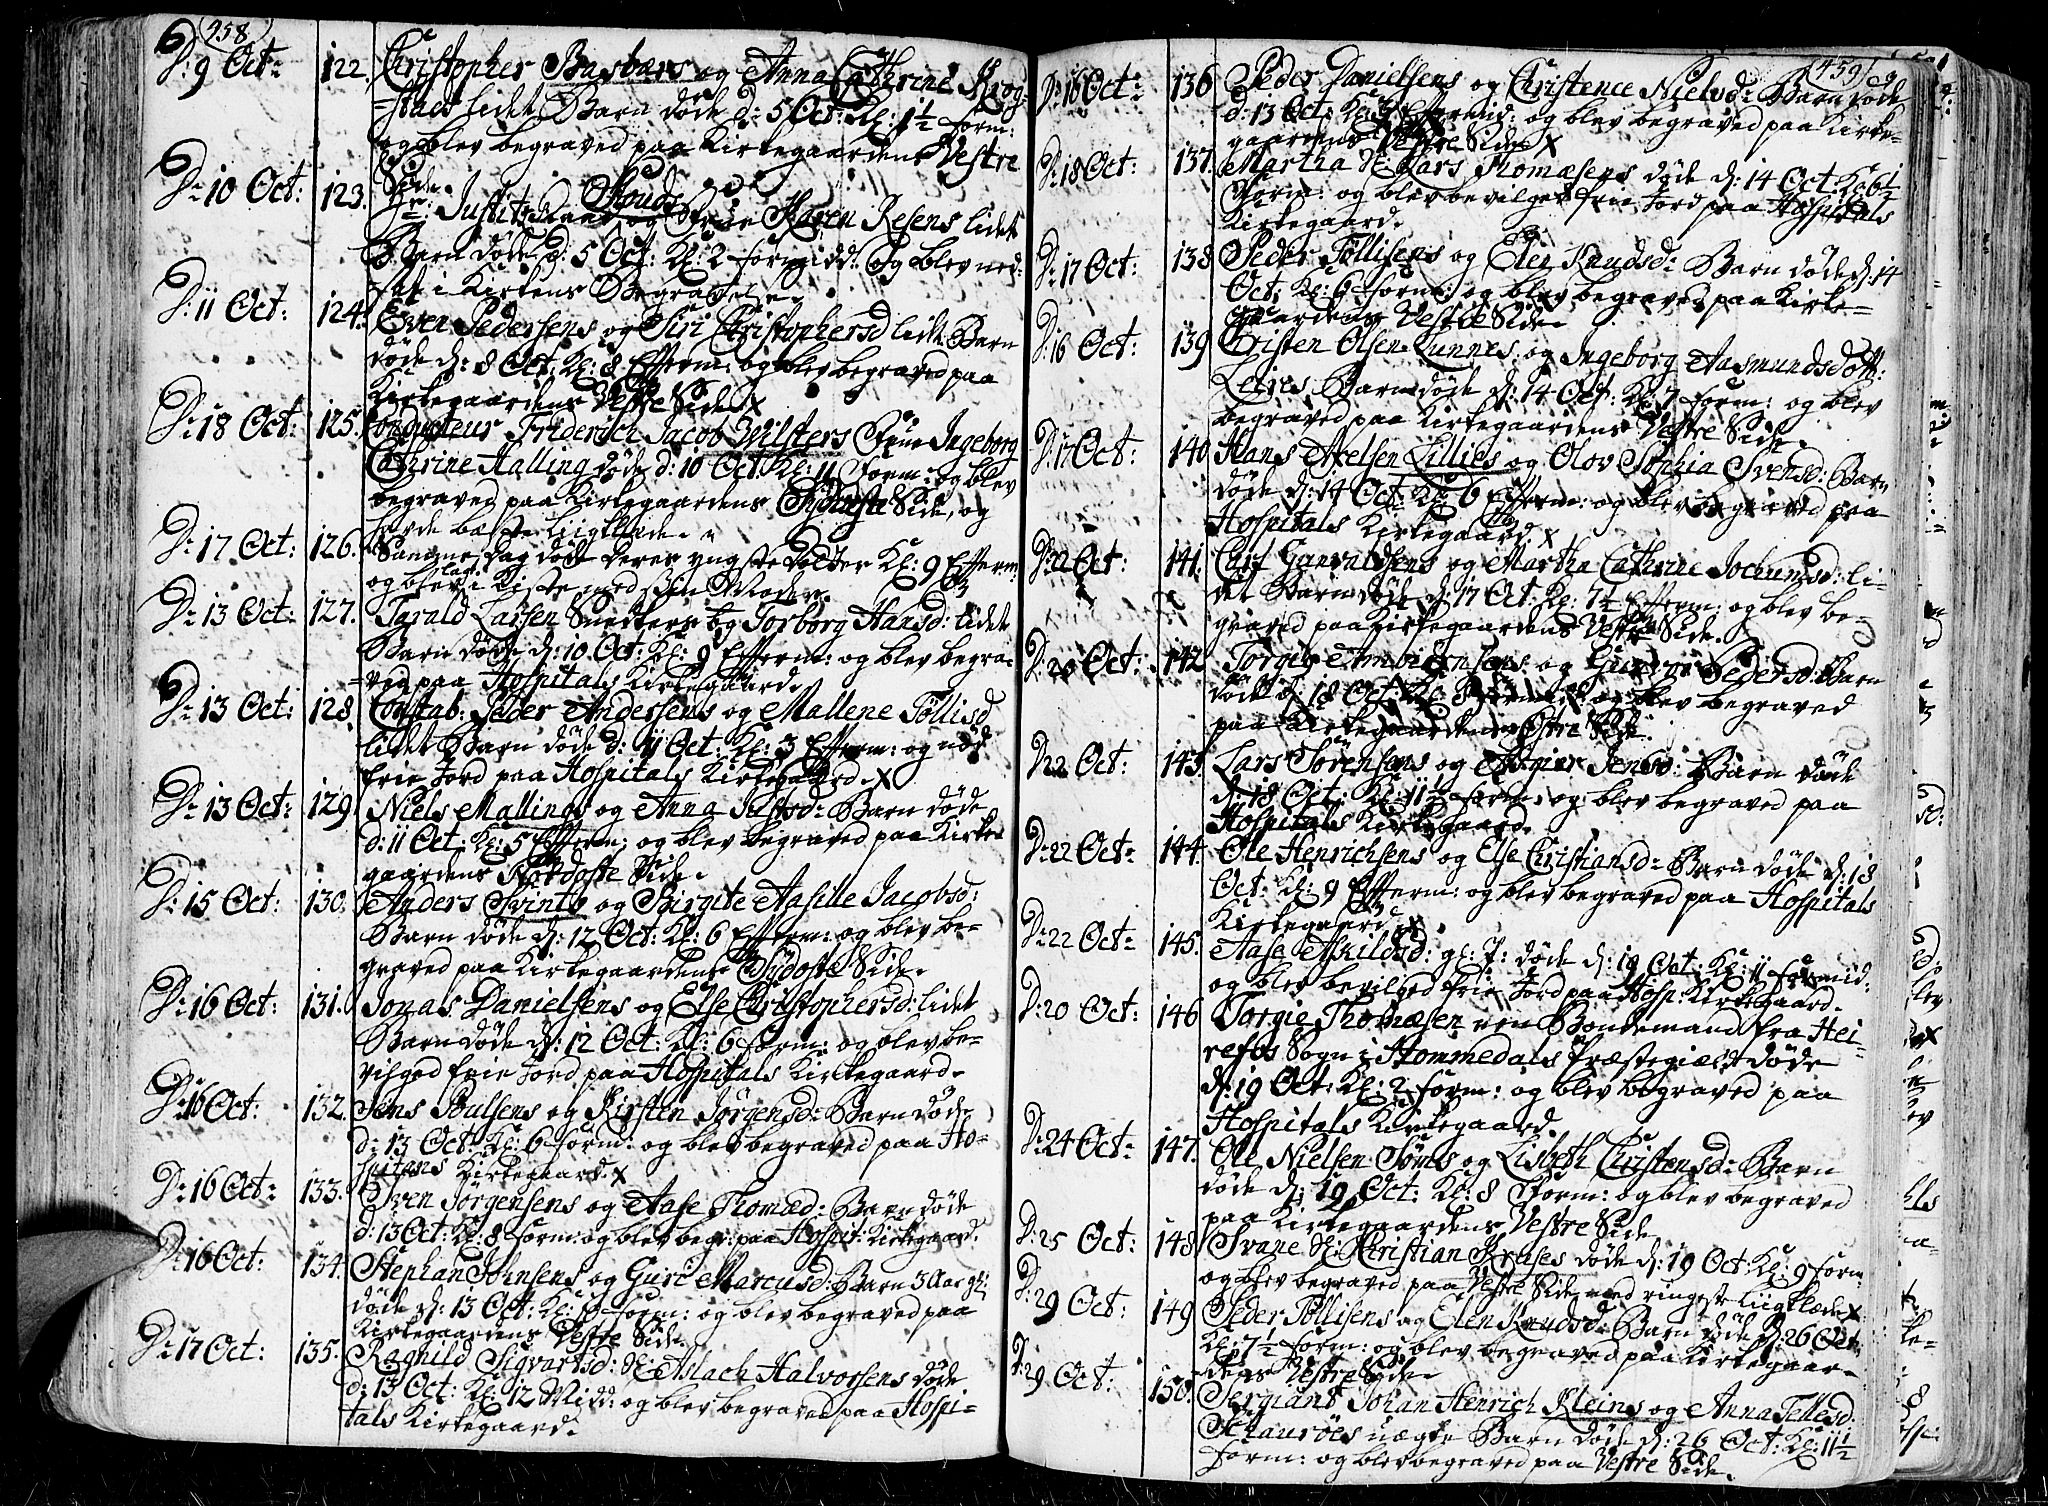 458
D: 9 Oct: 122. Christopher Basbærs og Anna Cathrine Krog-
-stads lidet Barn døde d: 5 Oct: Kl: 1½ form:
og blev begraved paa Kirkegaardens Vestre
Side.
D: 10 Oct: 123. Hr: Justit: Raad og Frue Karen Resens lidet
Barn døde d: 5 Oct: Kl: 2 formidd: og blev ned-
sat i Kirkens Begravelse.
D: 11 Oct: 124. Even Pedersens og Siri Christophersd lidt Barn
døde d: 8 Oct: Kl: 8 Efterm: og blev begraved paa
Kirkegaardens Vestre Side X
D: 18 Oct: 125. Conducteur Friderich Jacob Wilsters Frue Ingeborg
Cathrine Halling døde d: 10 Oct: Kl: 11 form: og blev
begraved paa Kirkegaardens Side, og
havde bæste Liigklæde.
D: 17 Oct: 126. Samme Dag døde deres yngste Dotter Kl: 9 Efterm:
og blev lagt i Kiste med sin Moder.
D: 13 Oct: 127. Tarald Larsen Snekkers og Torborg Hansd: lidet
Barn døde d: 10 Oct: Kl: 9 Efterm: og blev begra-
-ved paa Hospitals Kirkegaard.
D: 13 Oct: 128. Constab: Peder Andersens og Mallene Tøllisd
lidet Barn døde d: 11 Oct: Kl: 3 Efterm: og nød
frie Jord paa Hospitals Kirkegaard X
D: 13 Oct: 129. Niels Mallings og Anna Barn døde
d: 11 Oct: Kl: 5 Efterm: og blev begraved paa Kirke
gaardens Nordoste Side.
D: 15 Oct: 130. Anders Svinth og Birgite Aasille Jacobsd:
Barn døde d: 12 Oct: Kl: 6 Efterm: og blev be-
graved paa Kirkegaardens Sydoste Side.
D: 16 Oct: 131. Jonas Danielsens og Else Christophersd: lidet
Barn døde d: 12 Oct: Kl: 6 form: og blev be-
vilged frie Jord paa Hospitals Kirkegaard.
D: 16 Oct: 132. Jens Poulsens og Kirsten Jørgensd: Barn døde
d: 13 Oct: Kl: 6 form: og blev begraved paa Ho-
spitals Kirkegaard X
D: 16 Oct: 133. Sven Jørgensens og Aase Thomæd: Barn døde
d: 13 Oct: Kl: 8 form: og blev begr: paa Hospit: Kirkegaard.
D: 16 Oct: 134. Stephan Johnsens og Guri Marcusd: Barn 3 Aar gl:
døde d: 13 Oct: Kl: form: og blev begraved paa
Kirkegaardens Vestre Side.
D: 17 Oct: 135. Ragnild Sigvartsd: H: Aslach Halvorsens døde
d: 13 Oct: Kl: 12 Midd: og blev begraved paa Hospi-
tals Kirkegaard.
459
D: 16 Oct: 136 Peder Danielsens og Christence Nielsd: Barn døde
d: 13 Oct: Kl: 3 Eftermid: og blev begraved paa Kirke-
gaardens Vestre Side X
D: 18 Oct: 137. Martha H: Lars Thomæsens døde d: 14 Oct: Kl: 6½
form: og blev bevilget frie Jord paa Hospitals
Kirkegaard.
D: 17 Oct: 138 Peder Tøllisens og Elen Knudsd: Barn døde d: 14
Oct: Kl: 6 form: og blev begraved paa Kirke-
gaardens Vestre Side.
D: 16 Oct: 139 Cristen Olsen Lunnes og Ingeborg Aasmundsdøtt:
Barn døde d: 14 Oct: Kl: 7 form: og blev
begraved paa Kirkegaardens Vestre Side.
D: 17 Oct: 140 Hans Axelsen Lillies og Olov Sophia Svensd: Barn
døde d: 14 Oct: Kl: 6 Efterm: og blev begraved paa
Hospitals Kirkegaard X
D: 22 Oct: 141. Carl Ganvaldsens og Martha Cathrine Jochumsd: li-
det Barn døde d: 17 Oct: Kl: 7½ Efterm: og blev be-
graved paa Kirkegaardens Vestre Side.
D: 20 Oct: 142 Torgie og Pedersd: Barn
døde d: 18 Oct: Kl: 8 og blev begraved
paa Kirkegaardens Side.
D: 22 Oct: 143. Lars Sørensens og Jensd: Barn døde
d: 18 Oct: Kl: 11½ form: og blev begraved paa
Hospitals Kirkegaard.
D: 22 Oct: 144. Ole Henrichsens og Else Christiansd: Barn døde d: 18
Oct: Kl: 9 Efterm: og blev begraved paa Hospitals
Kirkegaard X
D: 22 Oct: 145. Aase Askildsd: gl: 7: døde d: 19 Oct: Kl: 11 formid:
og blev bevilged frie Jord paa Hosp: Kirkegaard.
D: 20 Oct: 146 Torgie Thomæsen en Bondemand fra Hei-
refos Sogn i Hommedals Præstegield døde
d: 19 Oct: Kl: 2 form: og blev begraved paa
Hospitals Kirkegaard.
D: 24 Oct: 147. Ole Nielsen Søms og Lisbeth Christensd: Barn
døde d: 19 Oct: Kl: 8 form: og blev begraved
paa Kirkegaardens Vestre Side.
D: 25 Oct: 148 Svane H: Christian Kruses døde d: 19 Oct: Kl: 9 form:
og blev begraved paa Vestre Side med ringeste Liigklæde X
D: 29 Oct: 149 Peder Tøllisens og Elen Knudsd: Barn døde d: 26 Oct:
Kl: 7½ form: og blev begraved paa Kirkegaar-
dens Vestre Side.
D: 29 Oct: 150. Sergiant Johan Henrich Kleins og Anna Tellesd:
uægte Barn døde d: 26 Oct: Kl: 11½
form: og blev begraved paa Vestre Side.